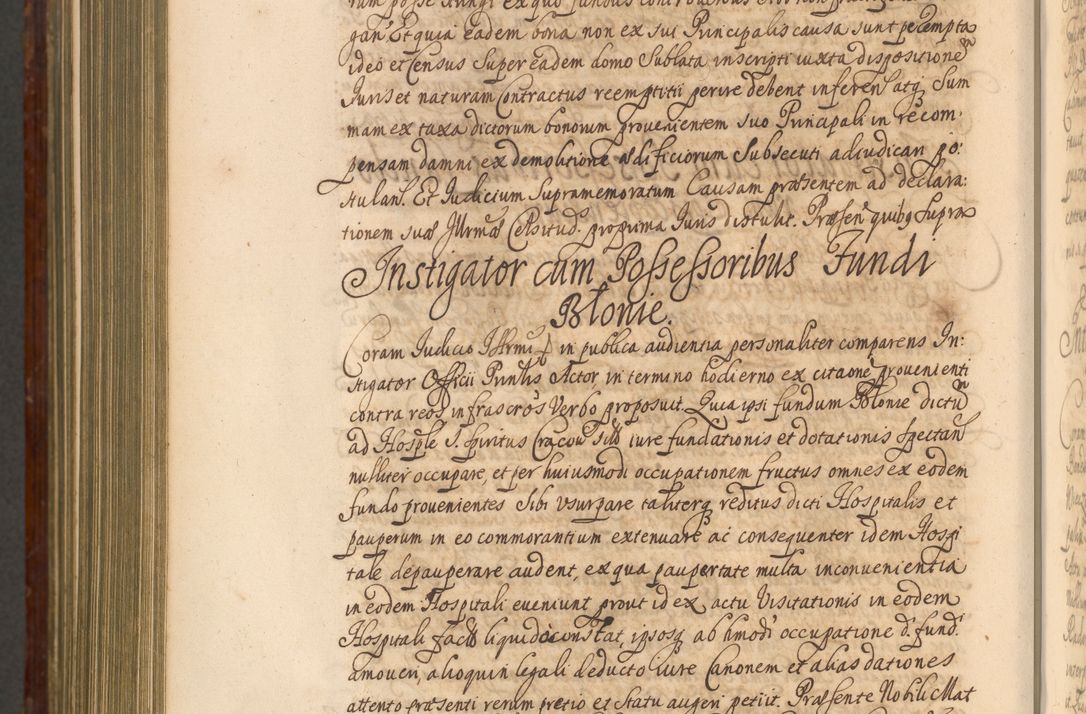 gan Et quia eadem bona non ex sui Principalis causa sunt perempta
ideo et Census Super eadem domo Sublata inscripti iuxta dispositionẽ
Juris et naturam Contractus reemptitii perire debent inferen̄ atq Sum
mam ex taxa dictorum bonorum provenientem suo Principali in recom
pensam damni ex demolitione ædificiorum Subsecuti adiudicari po:
stulan̄. Et Judicium Supramemoratum Causam præsentem ad declara:
tionem suæ Illrmæ Celsitud. proxima Juris distulit. Præsen̄ quibq Supra
Instigator cum Possessoribus Fundi
Błonie.
Coram Judicio Illrmi in publica audientia personaliter comparens In:
stigator Officii Pnntis Actor, in termino hodierno ex citaone provenienti
contra reos infrascros Verbo proposuit. Quia ipsi fundum Błonie dictũ
ad Hosple S. Spiritus Cracov iure fundationis et dotationis Spectan̄
nulliter occupare, et per huiusmodi occupationem fructus omnes ex eodem
fundo provenientes Sibi Usurpare taliterq reditus dicti Hospitalis et
pauperum in eo commorantium extenuare ac consequenter idem Hospi
tale depauperare audent, ex qua paupertate multa inconvenientia
in eodem Hospitali eveniunt prout id ex actu Visitationis in eodem
Hospitali facto liquido constat, ipsosq ab hmodi occupatione d. fund.
amoveri, alioquin legali deducto iure Canonem et alias dationes
attento præsenti rerum pretio et Statu augeri petiit. Præsente Nobili Mat